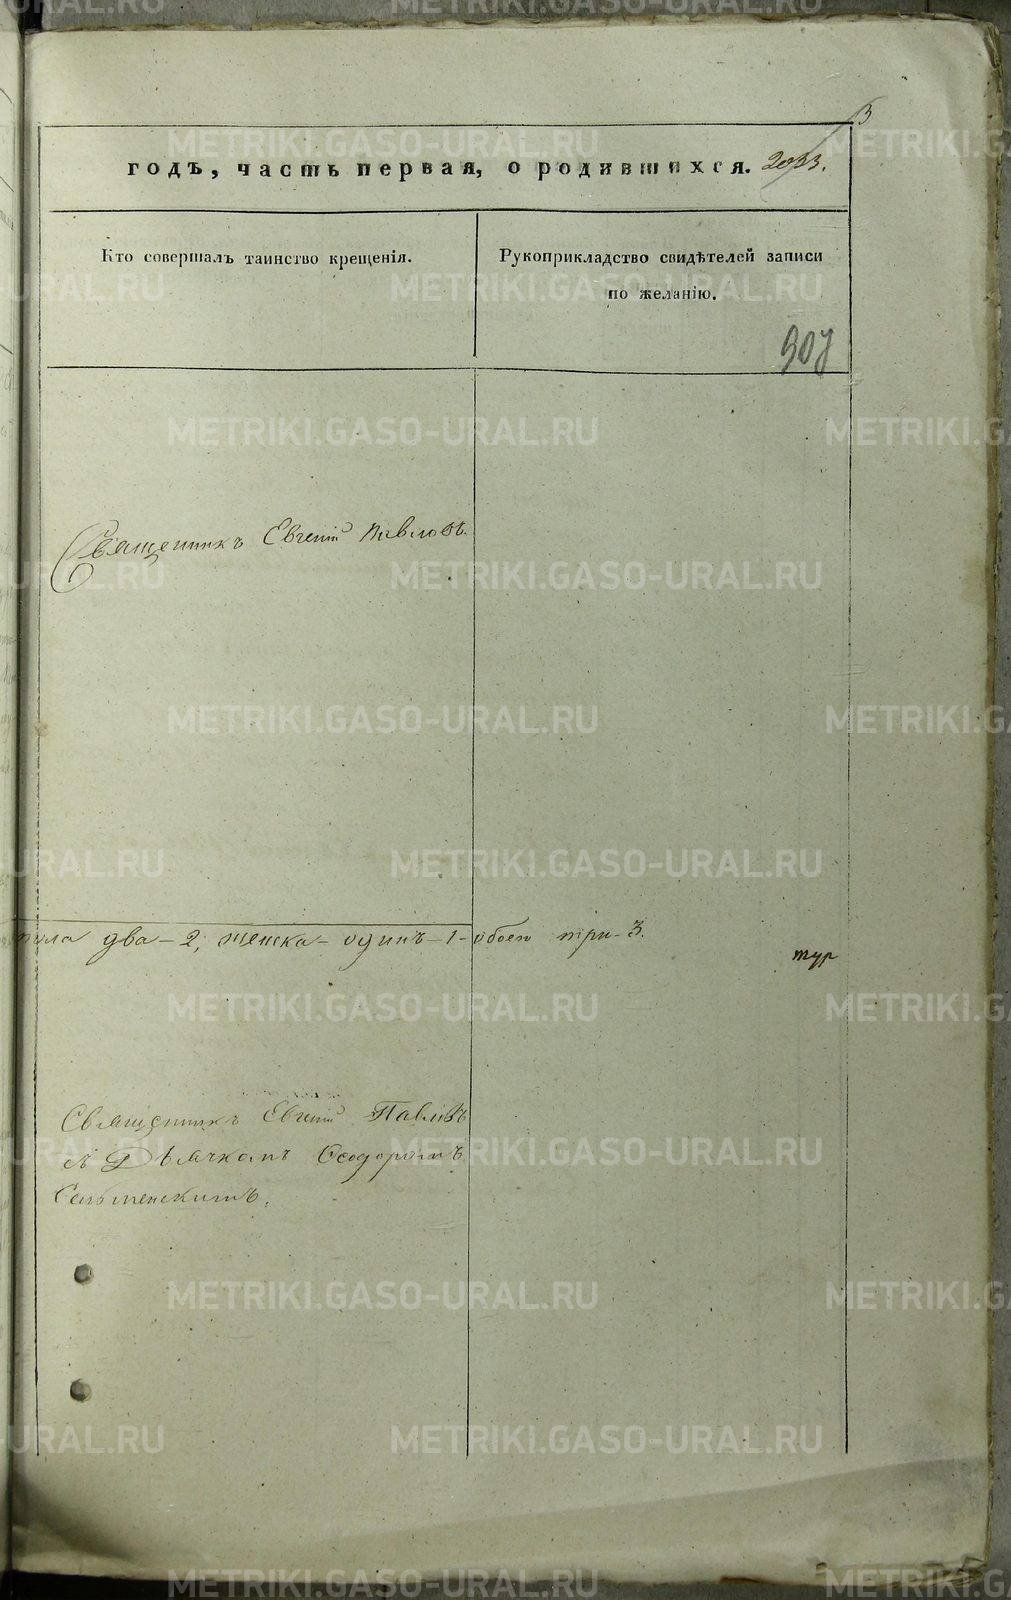 3
годъ, часть первая, о родившихся. 2033.
Кто совершалъ таинство крещенія.
Рукоприкладство свидѣтелей записи
по желанію.
907
Священникъ Евгеній Павловъ.
пола два - 2; женска - одинъ - 1 - обоего три - 3.
Священникъ Евгеній Павловъ
съ Дьячкомъ Ѳеодоромъ
METRIKI.GASO-URAL.RU